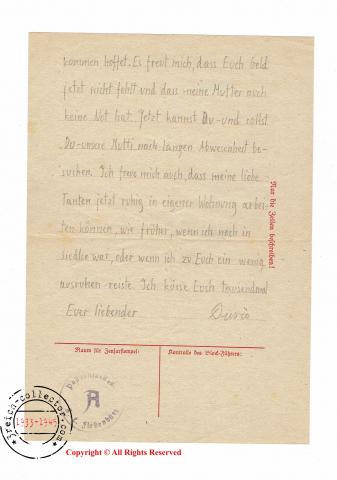 kommen hoffet. Es freut mich, dass Euch Geld
jetzt nicht fehlt und dass meine Mutter auch
keine Not hat. Jetzt kannst Du - und sollst
Du - unsere Mutti nach langen Abwesenheit be-
suchen. Ich freue mich auch, dass meine liebe
Tanten jetzt ruhig in eigener Wohnung arbei-
ten können, wie früher, wenn ich noch in
Siedlce war, oder wenn ich zu Euch ein wenig
ausruhen reiste. Ich küsse Euch tausendmal
Euer liebender
Nur die Zeilen beschreiben!
Raum für Zensurstempel:
Kontrolle des Block-Führers:
A
3reich-collector.com
1933-1945
Copyright © All Rights Reserved